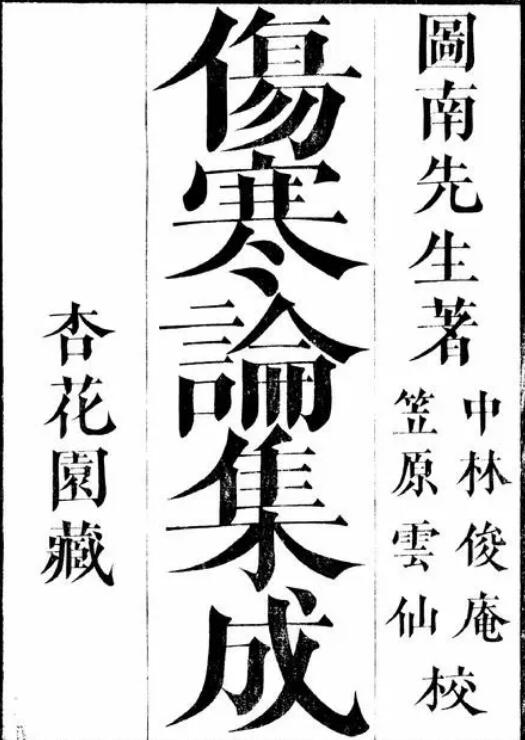 圖南先生著
中林俊庵
笠原雲仙
校
傷寒論集成
杏花園藏